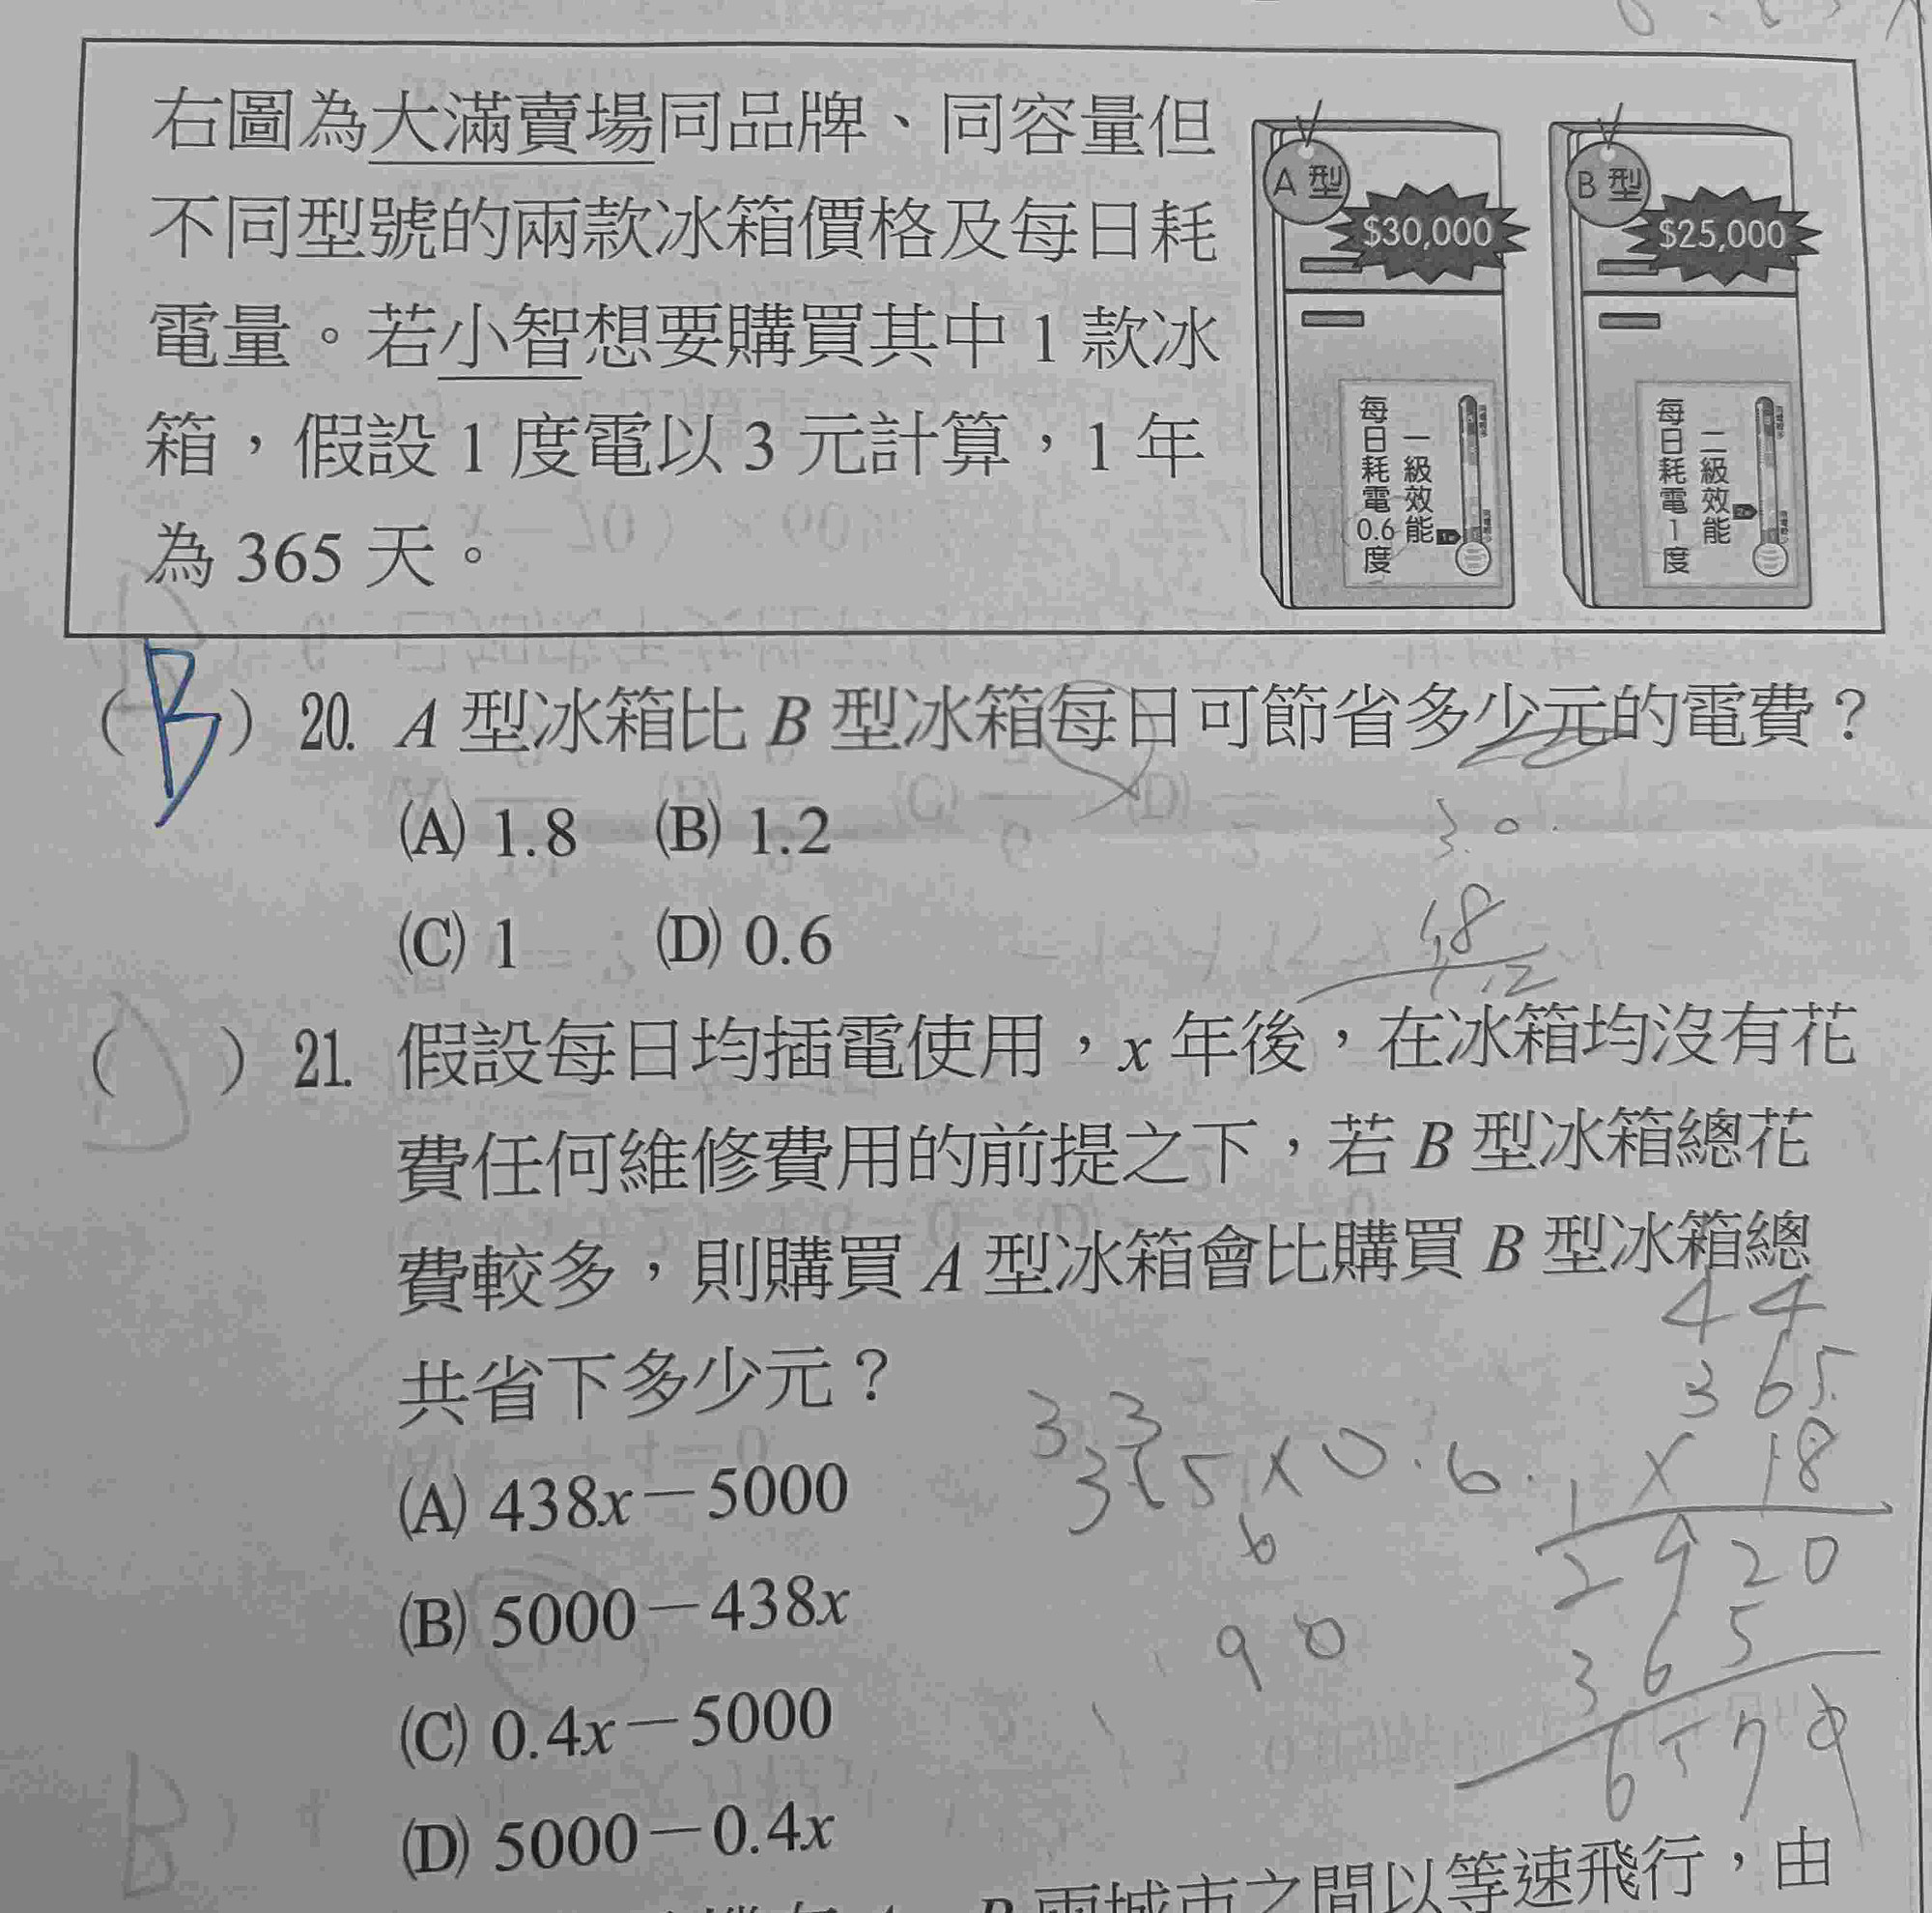 右圖為大滿賣場同品牌、同容量但
不同型號的兩款冰箱價格及每日耗
電量。若小智想要購買其中1款冰
箱，假設1度電以3元計算，1年
為365天。
A型
$30,000
一級效能
每日耗電0.6度
B型
$25,000
二級效能
每日耗電1度
(B) 20. A型冰箱比B型冰箱每日可節省多少元的電費？
(A) 1.8 (B) 1.2
(C) 1 (D) 0.6
3.0
1.8
1.2
(D) 21. 假設每日均插電使用，x年後，在冰箱均沒有花
費任何維修費用的前提之下，若B型冰箱總花
費較多，則購買A型冰箱會比購買B型冰箱總
共省下多少元？
(A) 438x－5000
(B) 5000－438x
(C) 0.4x－5000
(D) 5000－0.4x
44
365
×18
2920
365
6570
3 3
365×0.6
6
90
B
兩城市之間以等速飛行，由